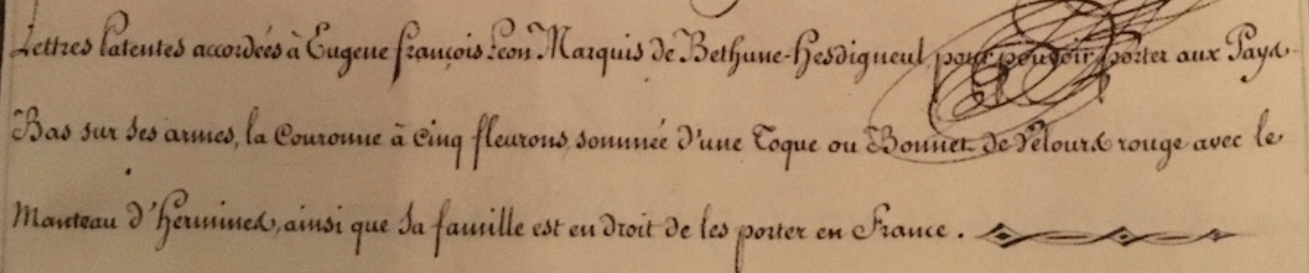 Lettres Patentes accordées à Eugene françois Leon Marquis de Bethune-Hesdigneul pour pouvoir porter aux Pays-
Bas sur ses armes, la Couronne à Cinq fleurons, sommée d'une Toque ou Bonnet de Velours rouge avec le
Manteau d'Hermines, ainsi que sa famille est en droit de les porter en France.